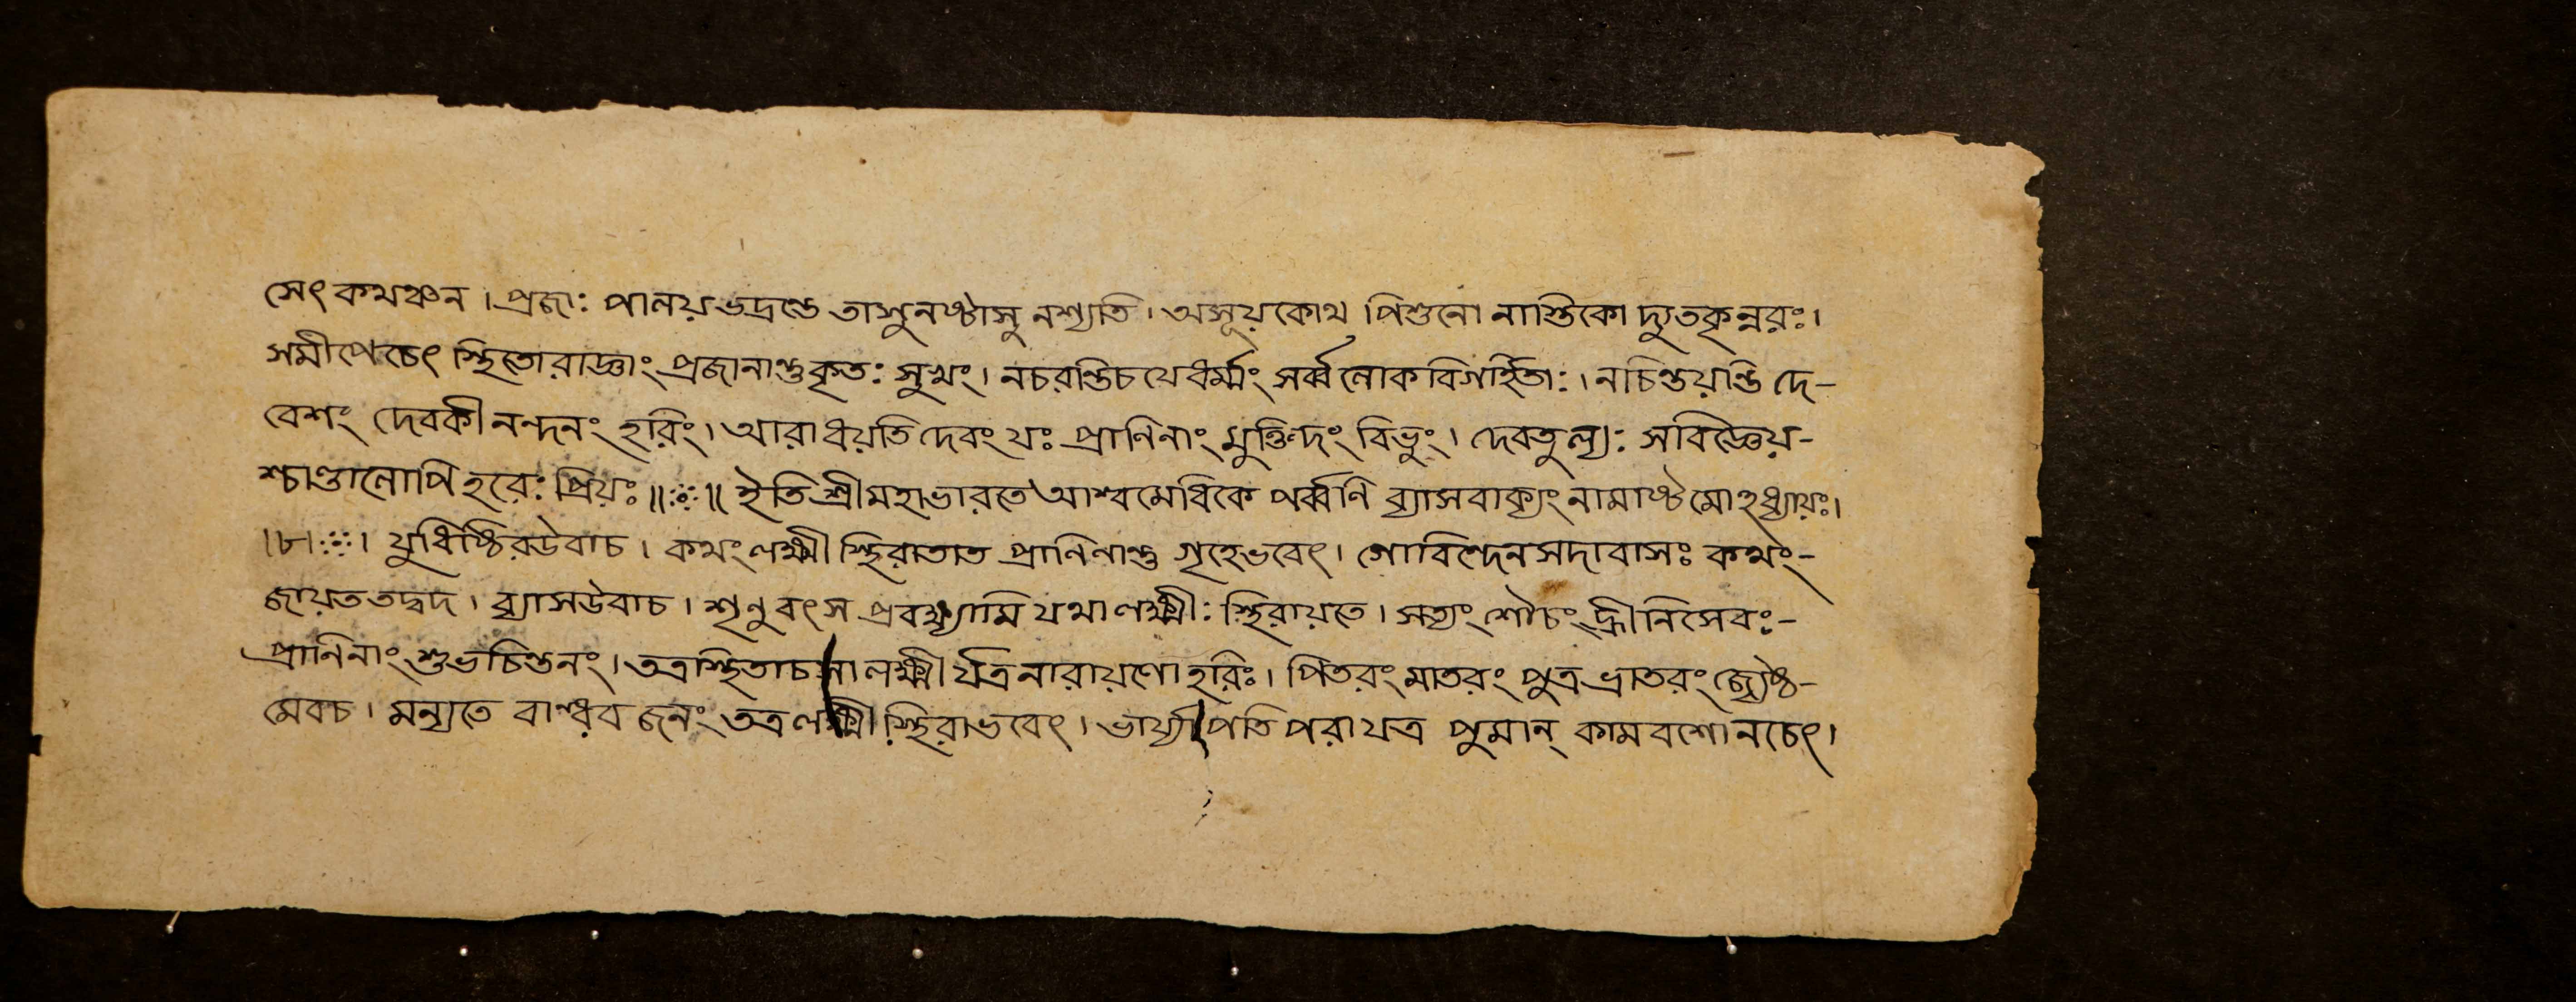 সেৎ কথঞ্চন । প্রজাঃ পালয় ভদ্রন্তে তাসু নষ্টাসু নশ্যতি । অসূয়কোথ পিশুনো নাস্তিকো দ্যুতকৃন্নরঃ ।
সমীপেচেৎ স্থিতোরাজ্ঞাং প্রজানান্তুকৃতঃ সুখং । নচরন্তিচ যেধর্ম্মং সর্ব্বলোকবিগর্হিতাঃ । নচিন্তয়ন্তি দে-
বেশং দেবকীনন্দনং হরিং । আরাধয়তি দেবং যঃ প্রাণিনাং মুক্তিদং বিভুং । দেবতুল্যঃ সবিজ্ঞেয়-
শ্চাণ্ডালোপি হরেঃ প্রিয়ঃ ॥ঃ॥ ইতি শ্রীমহাভারতে আশ্বমেধিকে পর্ব্বণি ব্যাসবাক্যং নামাষ্টমোহধ্যায়ঃ ।
।৮।ঃ। যুধিষ্ঠিরউবাচ । কথং লক্ষ্মী স্থিরাতাত প্রাণিনান্তু গৃহেভবেৎ । গোবিন্দেন সদাবাসঃ কথং-
জায়ত তদ্বদ । ব্যাসউবাচ । শৃণু বৎস প্রবক্ষ্যামি যথা লক্ষ্মীঃ স্থিরায়তে । সত্যং শৌচং হ্রীনিসেবঃ-
প্রাণিনাং শুভচিন্তনং । তত্রস্থিতাচ সা লক্ষ্মী র্যত্র নারায়ণো হরিঃ । পিতরং মাতরং পুত্র ভ্রাতরং জ্যেষ্ঠ-
মেবচ । মন্যতে বান্ধব জনং তত্র লক্ষ্মী স্থিরাভবেৎ । ভার্য্যা পতিপরা যত্র পুমান্ কামবশো নচেৎ ।